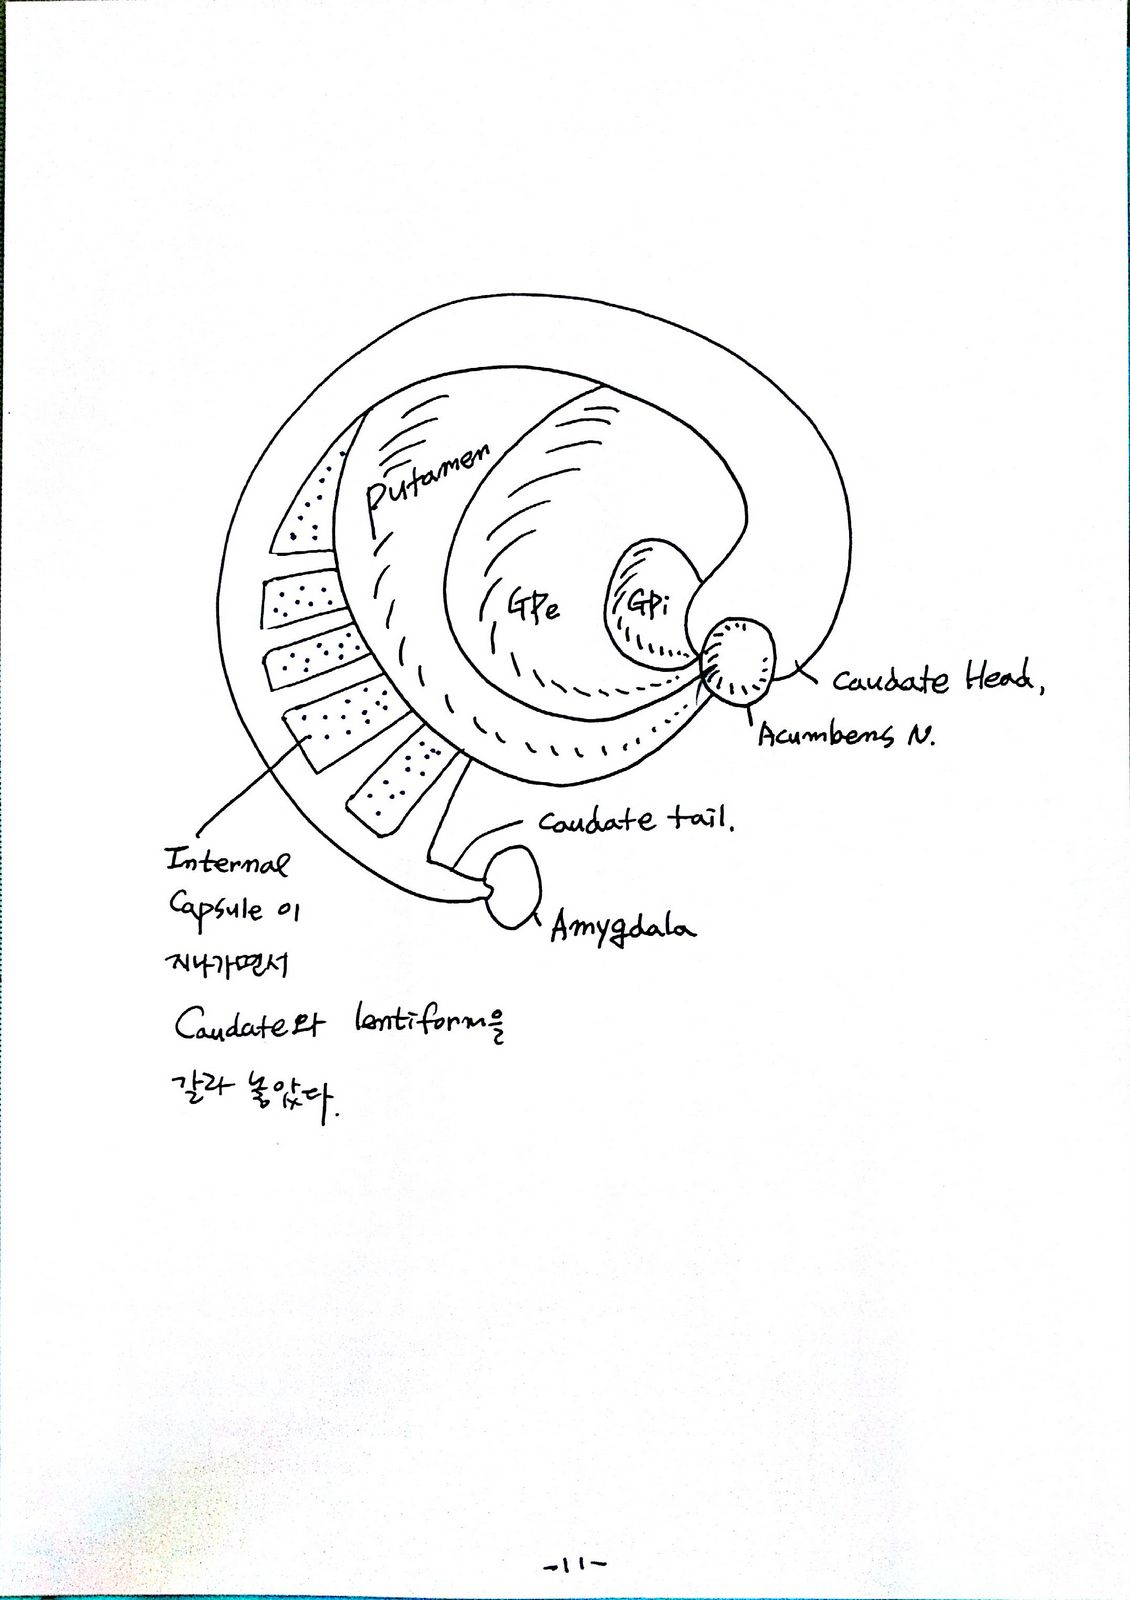 Putamen
GPe
GPi
Caudate Head,
Acumbens N.
Caudate tail.
Amygdala
Internal
Capsule 이
지나가면서
Caudate와 lentiform을
갈라 놓았다.
-11-